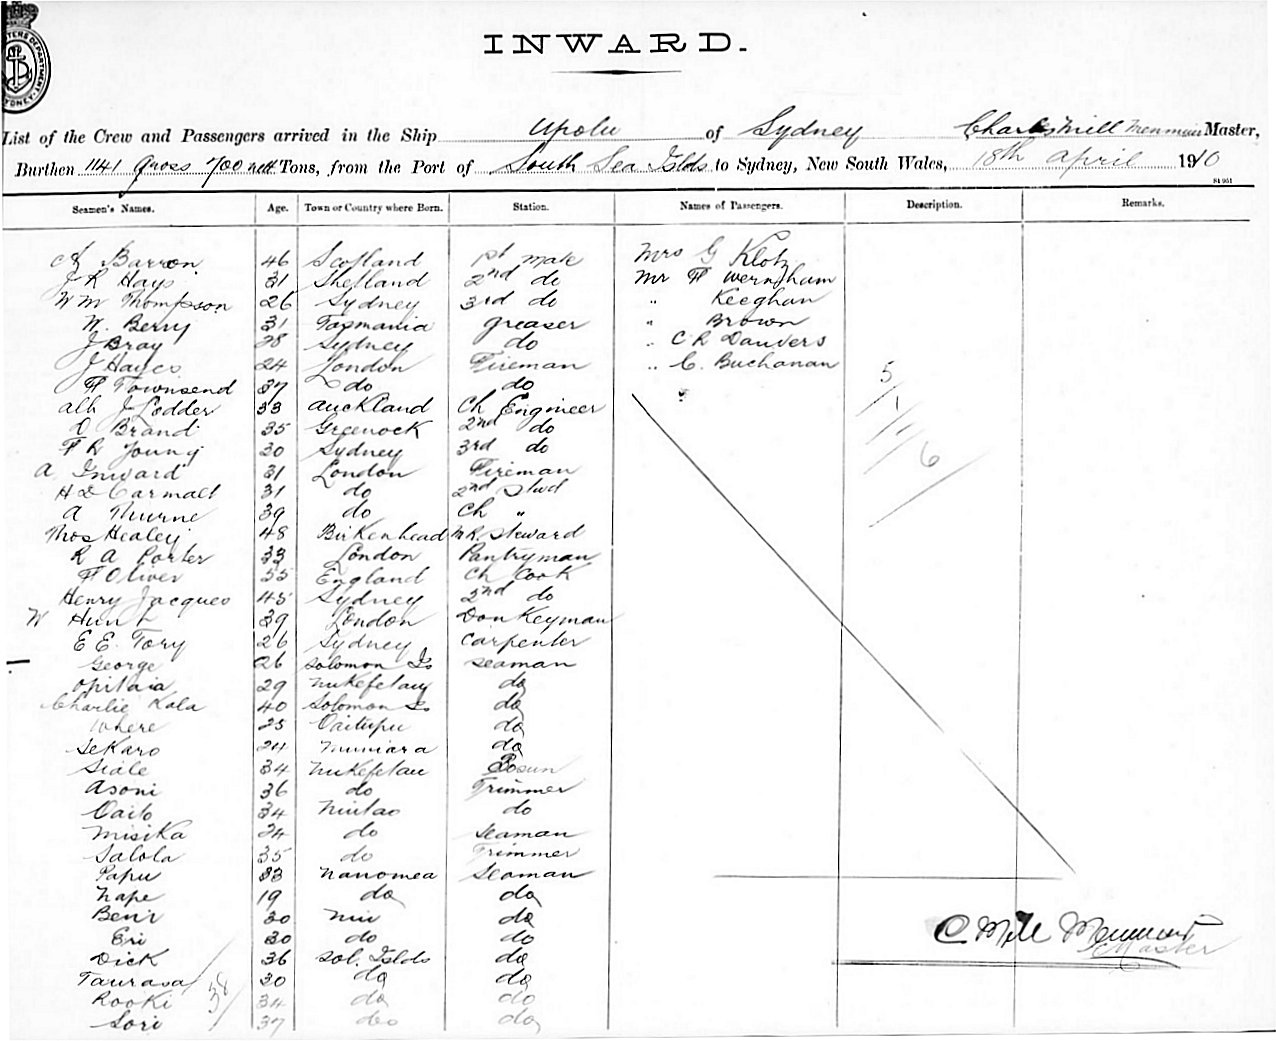 INWARD.
List of the Crew and Passengers arrived in the Ship Upolu of Sydney Charles Mill Menmuir Master,
Burthen 1141 Gross 700 nett Tons, from the Port of South Sea Islds to Sydney, New South Wales, 18th April 1910
Seamen's Names. Age. Town or Country where Born. Station. Names of Passengers. Description. Remarks.
A Barron 46 Scotland 1st mate Mrs G Klotz
J R Hays 31 Shetland 2nd do Mr F Wernham
Wm Thompson 26 Sydney 3rd do " Keeghan
W. Berry 31 Tasmania greaser " Brown
J Bray 28 Sydney do " C R Danvers
J Hayes 24 London Fireman " C. Buchanan
F Townsend 37 do do
Alb J Lodder 33 Auckland Ch Engineer
D Brand 35 Greenock 2nd do
F R Young 30 Sydney 3rd do
A Inward 31 London Fireman
H D Carmalt 31 do 2nd Stwd
A Thurne 39 do Ch "
Thos Healey 48 Birkenhead Steward
R A Porter 33 London Pantryman
F Oliver 55 England Ch Cook
Henry Jacques 45 Sydney 2nd do
W Hunt 39 London Donkeyman
E E. Tory 26 Sydney Carpenter
George 26 Solomon Is seaman
Opitaia 29 Nukefetau do
Charlie Kala 40 Solomon Is do
Where 25 Vaitupu do
Sekaro 24 do
Siale 34 Nukefetau Bosun
Asoni 36 do Trimmer
Vaito 34 Niutao do
Misika 24 do Seaman
Salola 35 do Trimmer
Papu 33 Nanomea Seaman
Nape 19 do do
Beni 30 Niu do
Eri 30 do do
Dick 36 Sol. Islds do
Taurasa 30 do do
Rooki 34 do do
Sori 37 do do
38
5
1
6
C Mill Menmuir
Master